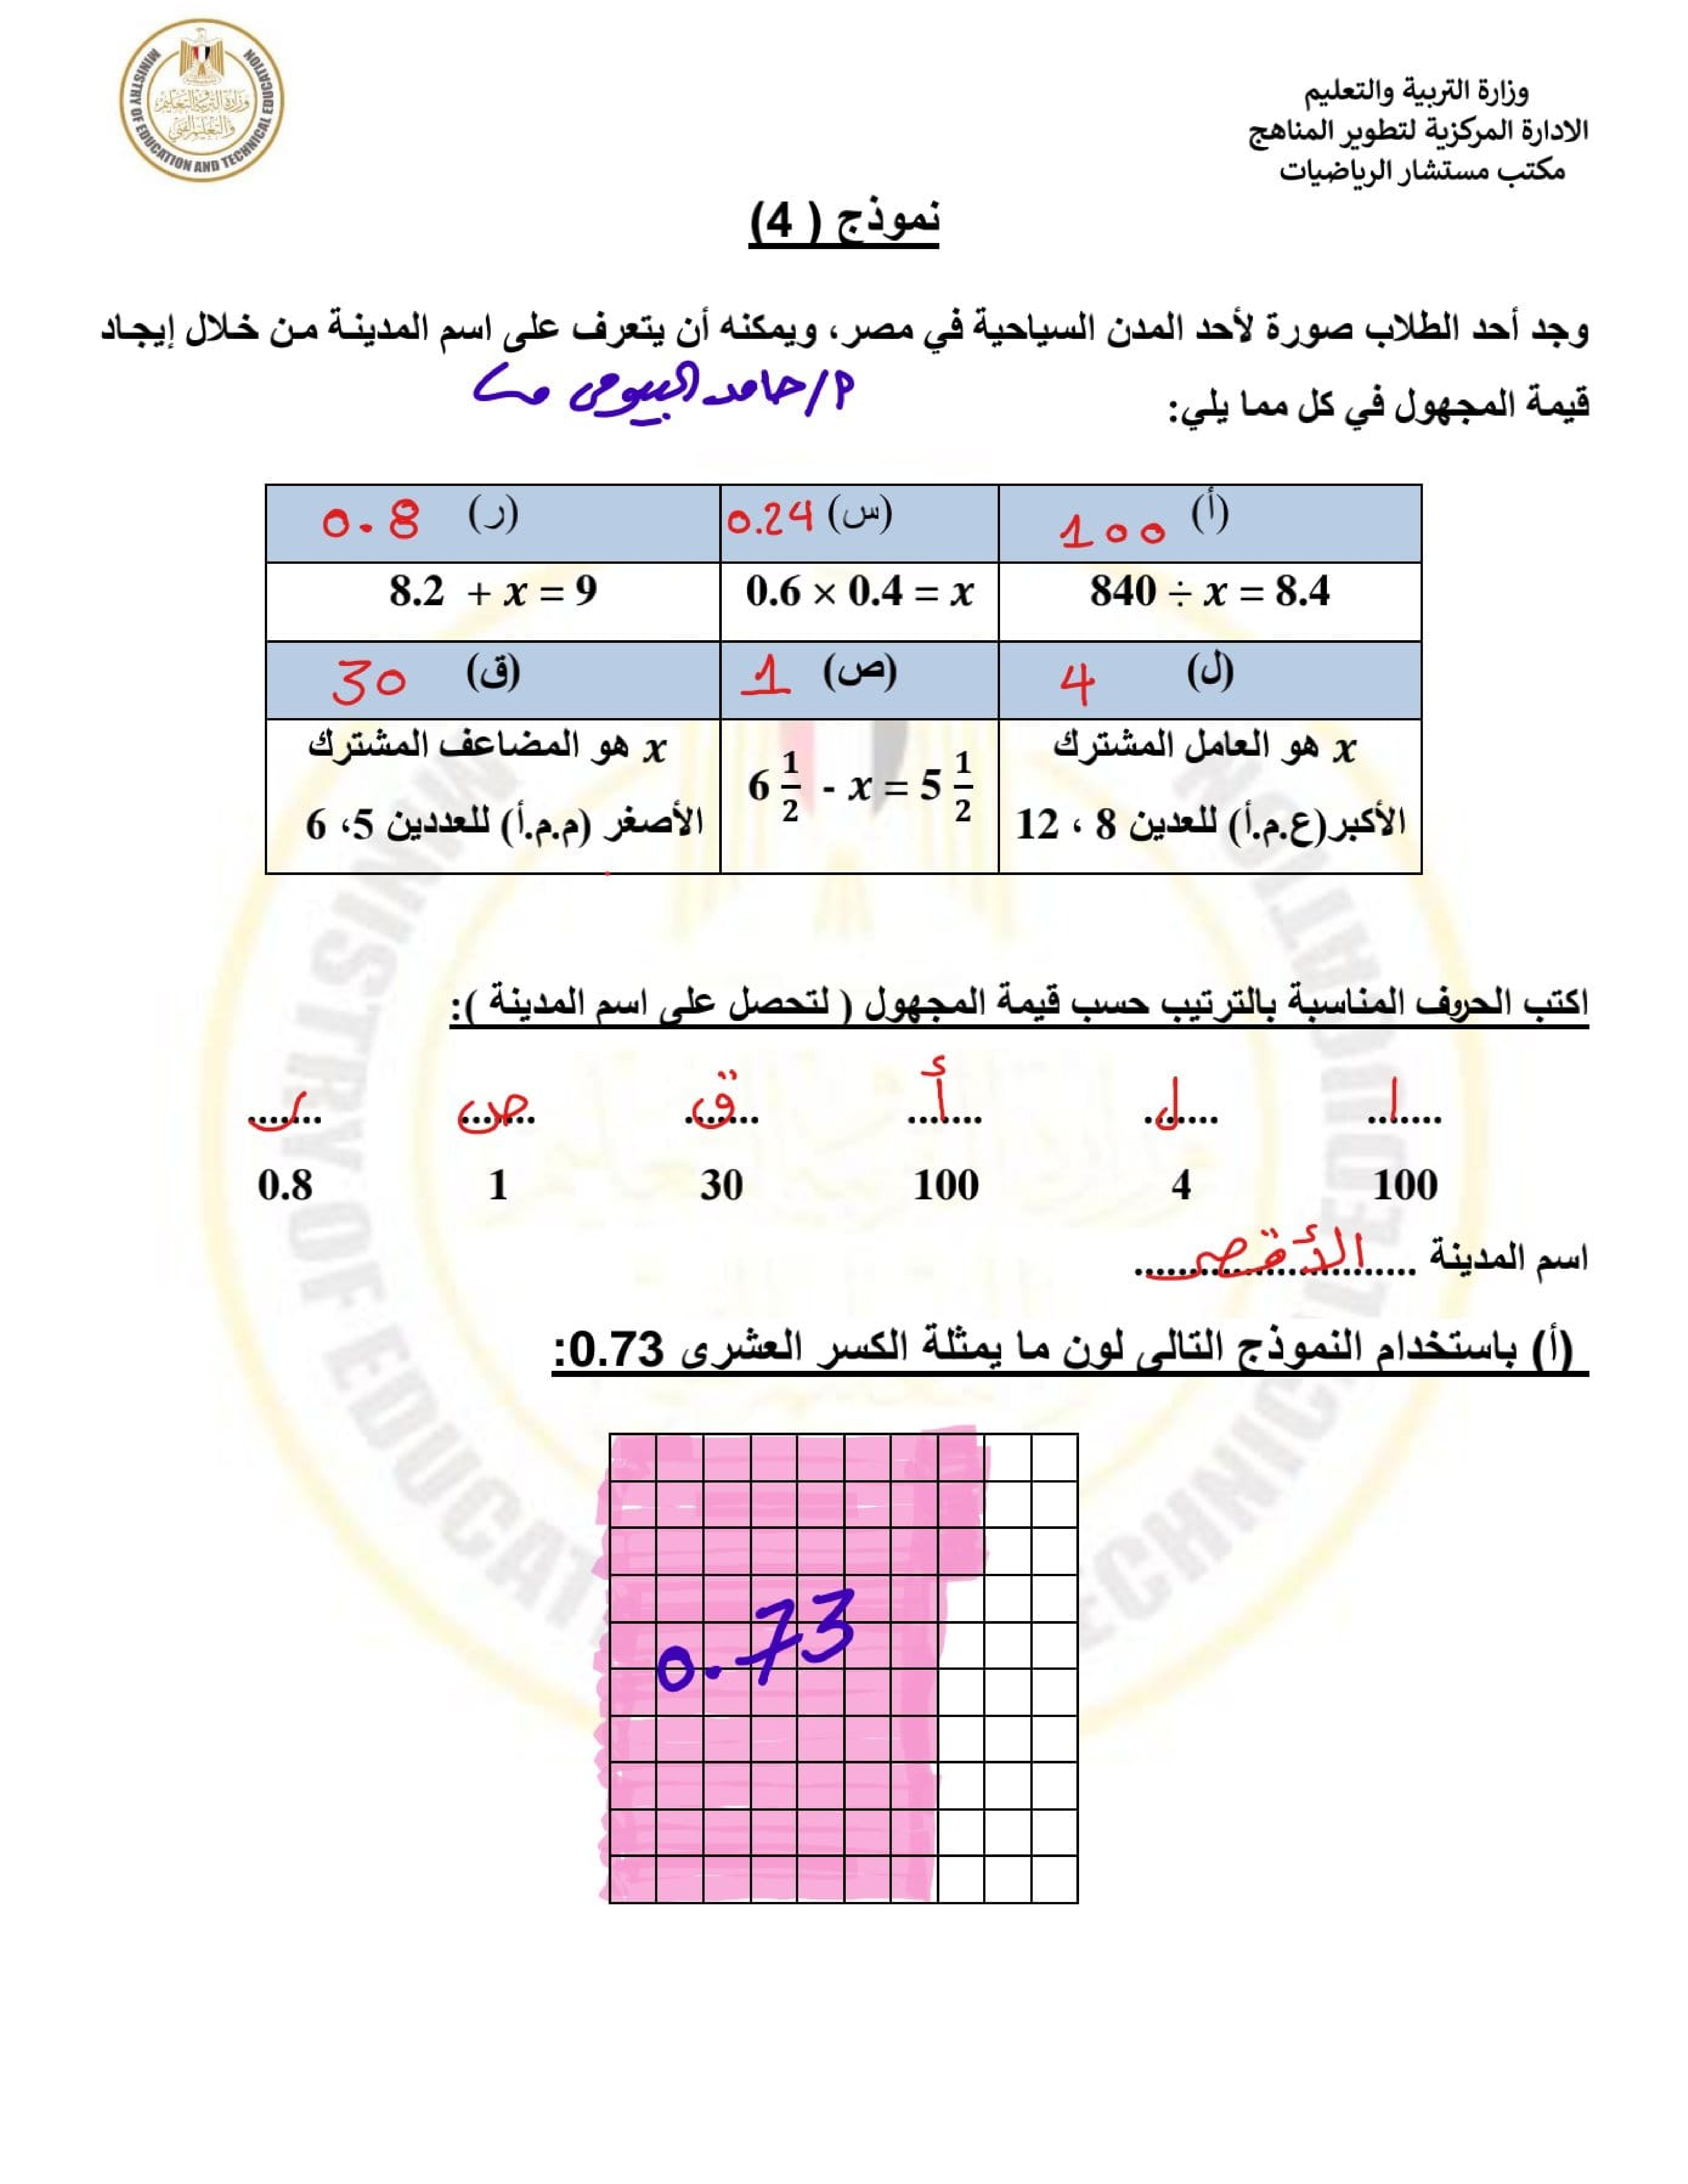 وزارة التربية والتعليم
الادارة المركزية لتطوير المناهج
مكتب مستشار الرياضيات
MINISTRY OF EDUCATION AND TECHNICAL EDUCATION
وزارة التربية والتعليم
والتعليم الفني
نموذج ( 4)
وجد أحد الطلاب صورة لأحد المدن السياحية في مصر، ويمكنه أن يتعرف على اسم المدينة من خلال إيجاد
قيمة المجهول في كل مما يلي:
أ/حامد البيومى
(أ) 100 (س) 0.24 (ر) 0.8
840 ÷ x = 8.4 0.6 × 0.4 = x 8.2 + x = 9
(ل) 4 (ص) 1 (ق) 30
x هو العامل المشترك
الأكبر(ع.م.أ) للعدين 8 ، 12
6 1/2 - x = 5 1/2
x هو المضاعف المشترك
الأصغر (م.م.أ) للعددين 5، 6
اكتب الحروف المناسبة بالترتيب حسب قيمة المجهول ( لتحصل على اسم المدينة ):
ا ل أ ق ص ر
100 4 100 30 1 0.8
اسم المدينة الأقصر
(أ) باستخدام النموذج التالى لون ما يمثلة الكسر العشرى 0.73:
0.73